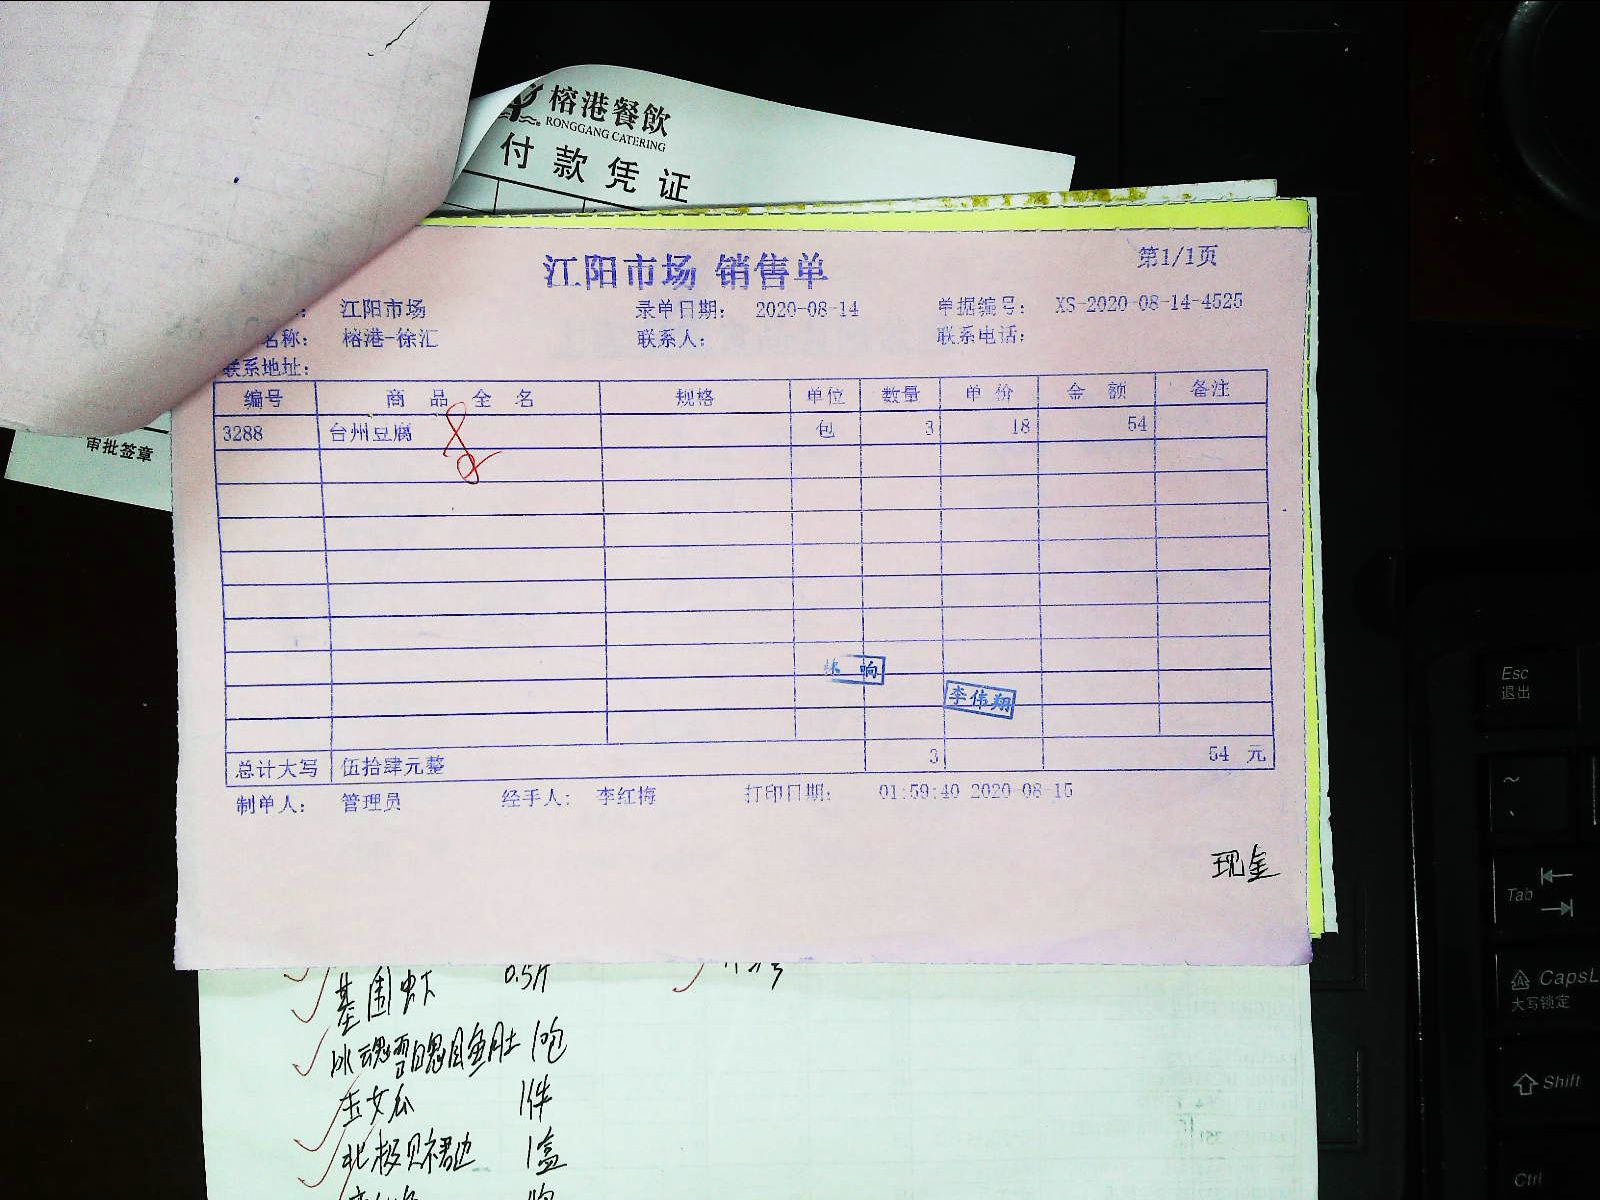 榕港餐飲
RONGGANG CATERING
付款凭证
江阳市场 销售单
第1/1页
江阳市场 录单日期: 2020-08-14 单据编号: XS-2020-08-14-4525
名称: 榕港-徐汇 联系人: 联系电话:
联系地址:
编号 商品全名 规格 单位 数量 单价 金额 备注
3288 台州豆腐 包 3 18 54
审批签章
响
李伟翔
总计大写 伍拾肆元整 3 54 元
制单人: 管理员 经手人: 李红梅 打印日期: 01:59:40 2020-08-15
现金
基围虾 0.5斤
1包
玉女瓜 1件
北极贝裙边 1盒
Esc
退出
~
Tab
CapsL
大写锁定
Shift
Ctrl